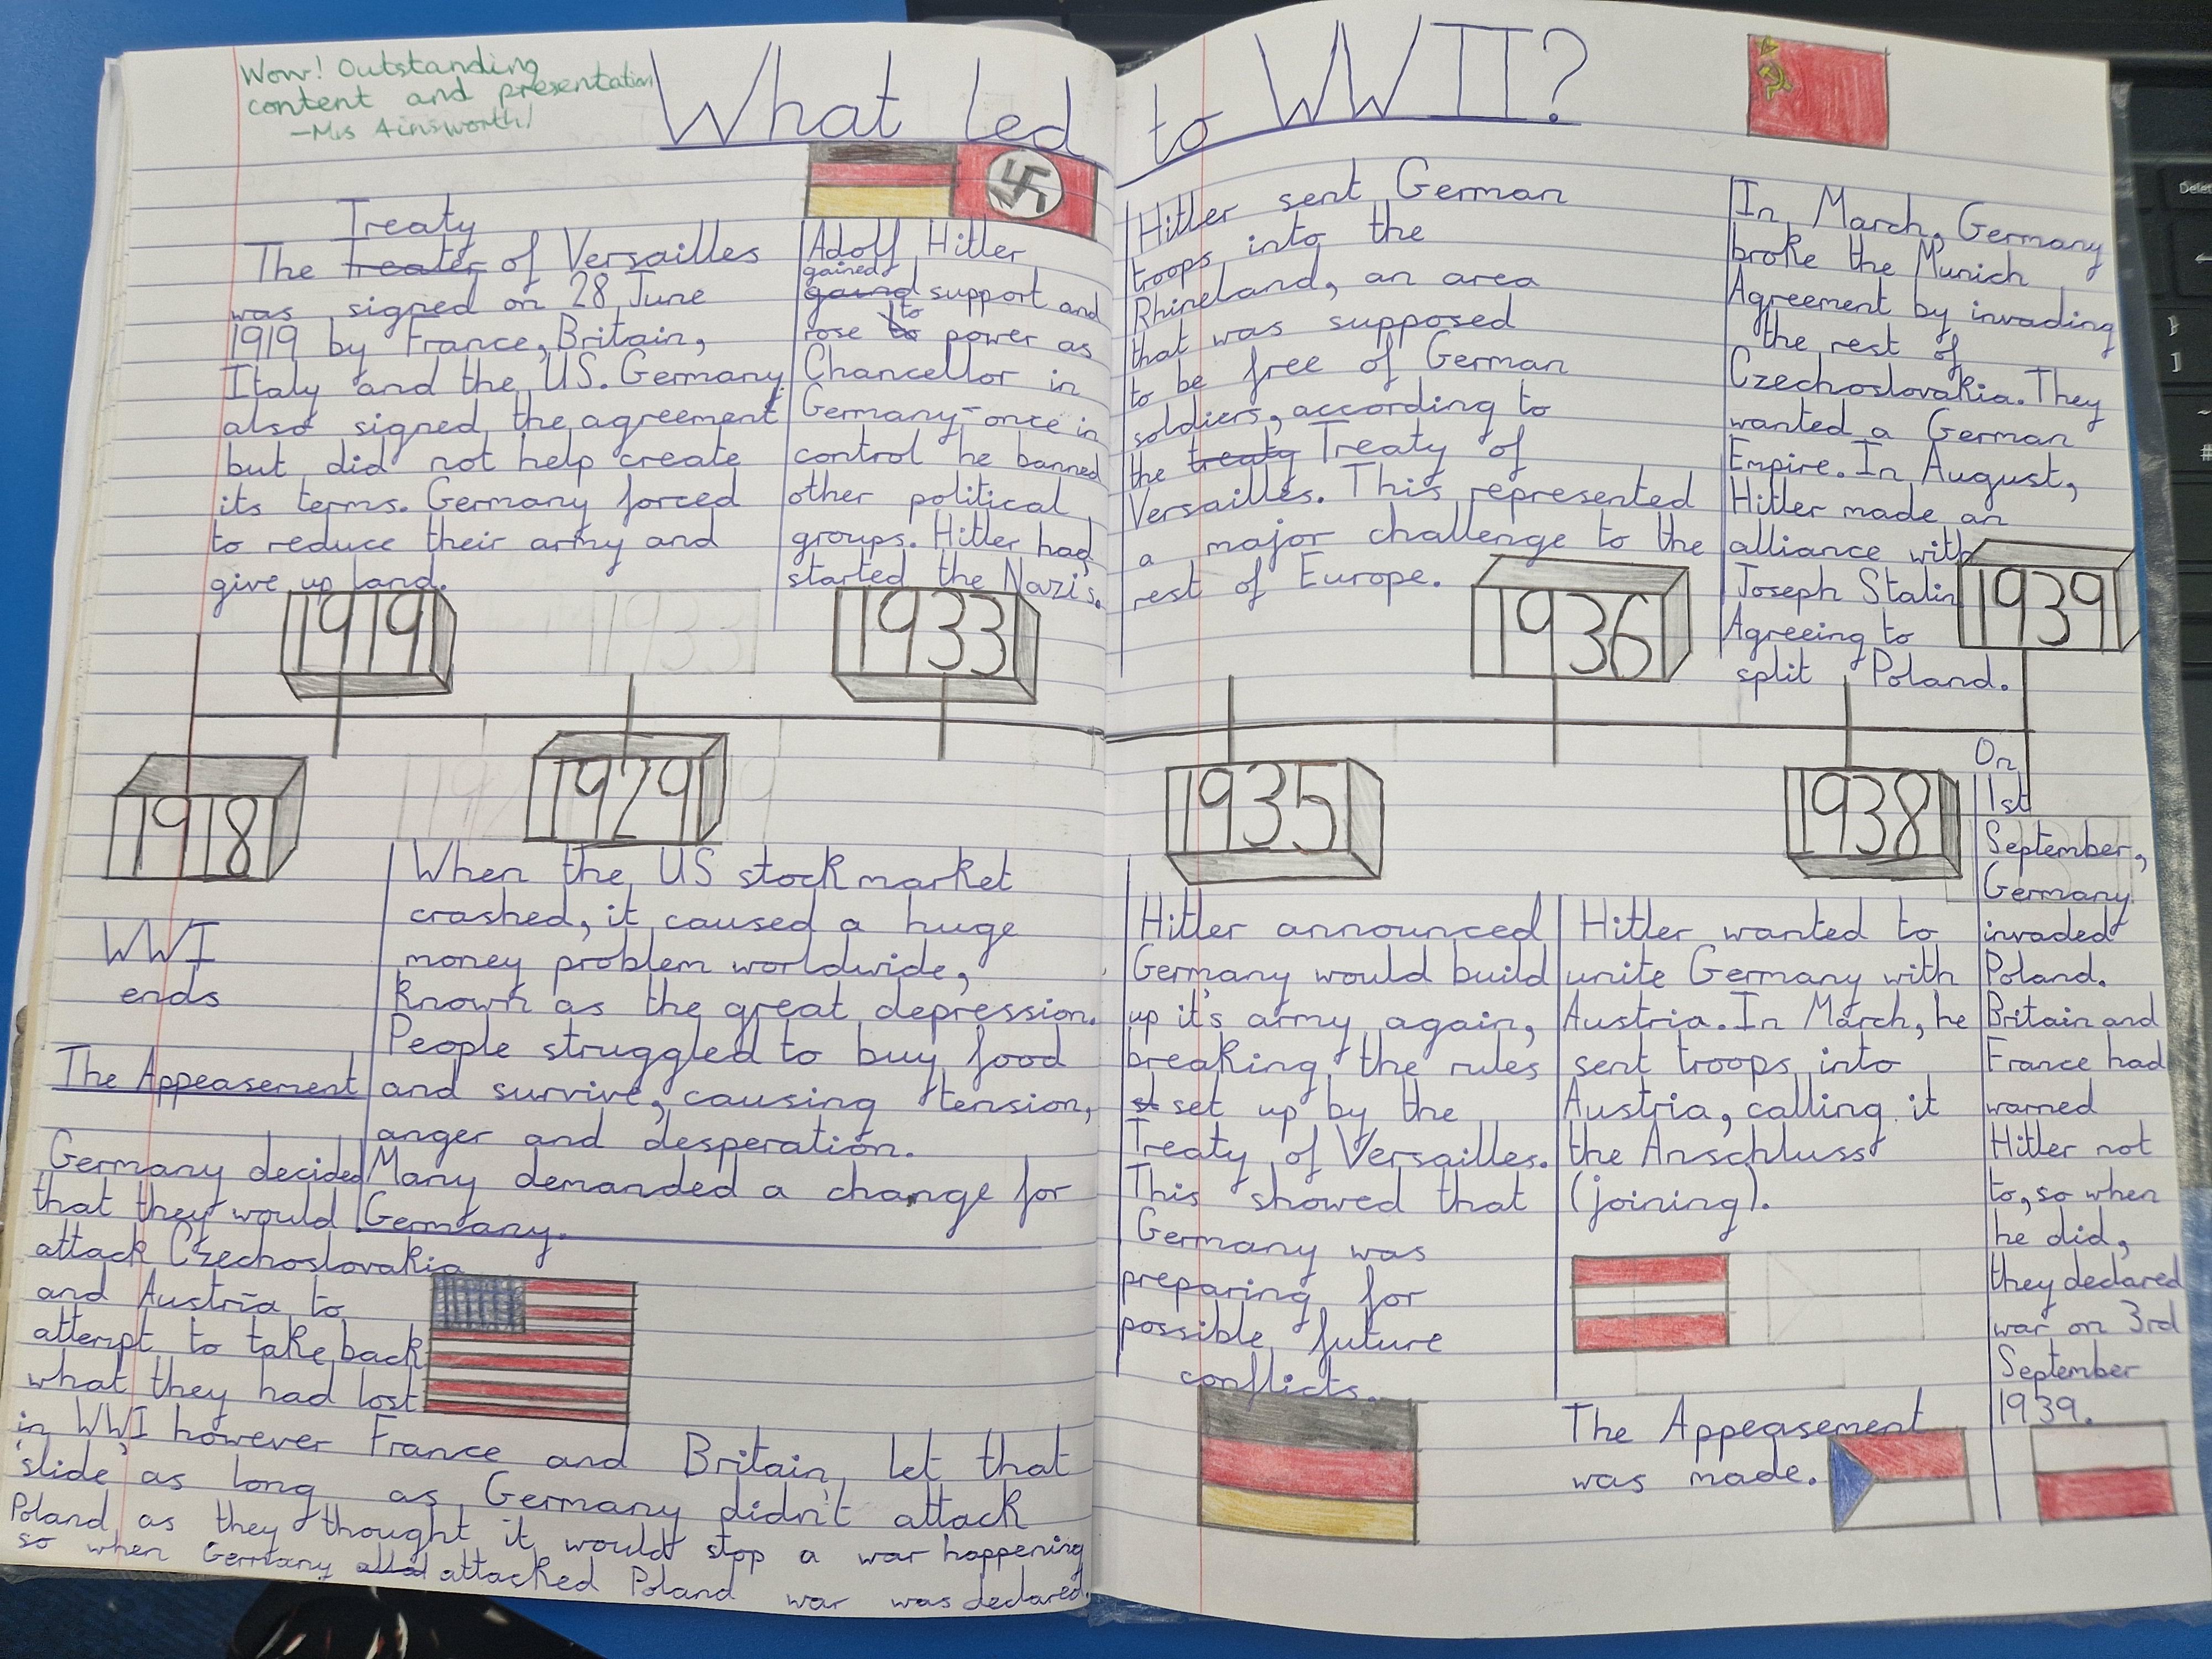 Wow! Outstanding
content and presentation
-Mrs Ainsworth!
What led to WWII?
Treaty
The Treater of Versailles
was signed on 28 June
1919 by France, Britain,
Italy and the US. Germany
also signed the agreement
but did not help create
its terms. Germany forced
to reduce their army and
give up land.
1919
Adolf Hitler
gained
gaind support and
to
rose to power as
Chancellor in
Germany-once in
control he banned
other political
groups. Hitler had
started the Nazi's.
1933
1933
Hitler sent German
troops into the
Rhineland, an area
that was supposed
to be free of German
soldiers, according to
the treaty Treaty of
Versailles. This represented
a major challenge to the
rest of Europe.
1936
In March, Germany
broke the Munich
Agreement by invading
the rest of
Czechoslovakia. They
wanted a German
Empire. In August,
Hitler made an
alliance with
Joseph Stalin
Agreeing to
split Poland.
1939
1918
WWI
ends
1929
When the US stock market
crashed, it caused a huge
money problem worldwide,
known as the great depression.
People struggled to buy food
and survive, causing tension,
anger and desperation.
Many demanded a change for
Germany.
The Appeasement
Germany decided
that they would
attack Czechoslovakia
and Austria to
attempt to take back
what they had lost
in WWI however France and Britain let that
'slide' as long as Germany didn't attack
Poland as they thought it would stop a war happening
so when Germany attacked Poland war was declared.
1935
Hitler announced
Germany would build
up it's army again,
breaking the rules
st set up by the
Treaty of Versailles.
This showed that
Germany was
preparing for
possible future
conflicts.
1938
Hitler wanted to
unite Germany with
Austria. In March, he
sent troops into
Austria, calling it
the Anschluss
(joining).
The Appeasement
was made.
On
1st
September,
Germany
invaded
Poland.
Britain and
France had
warned
Hitler not
to, so when
he did,
they declared
war on 3rd
September
1939.
Delete